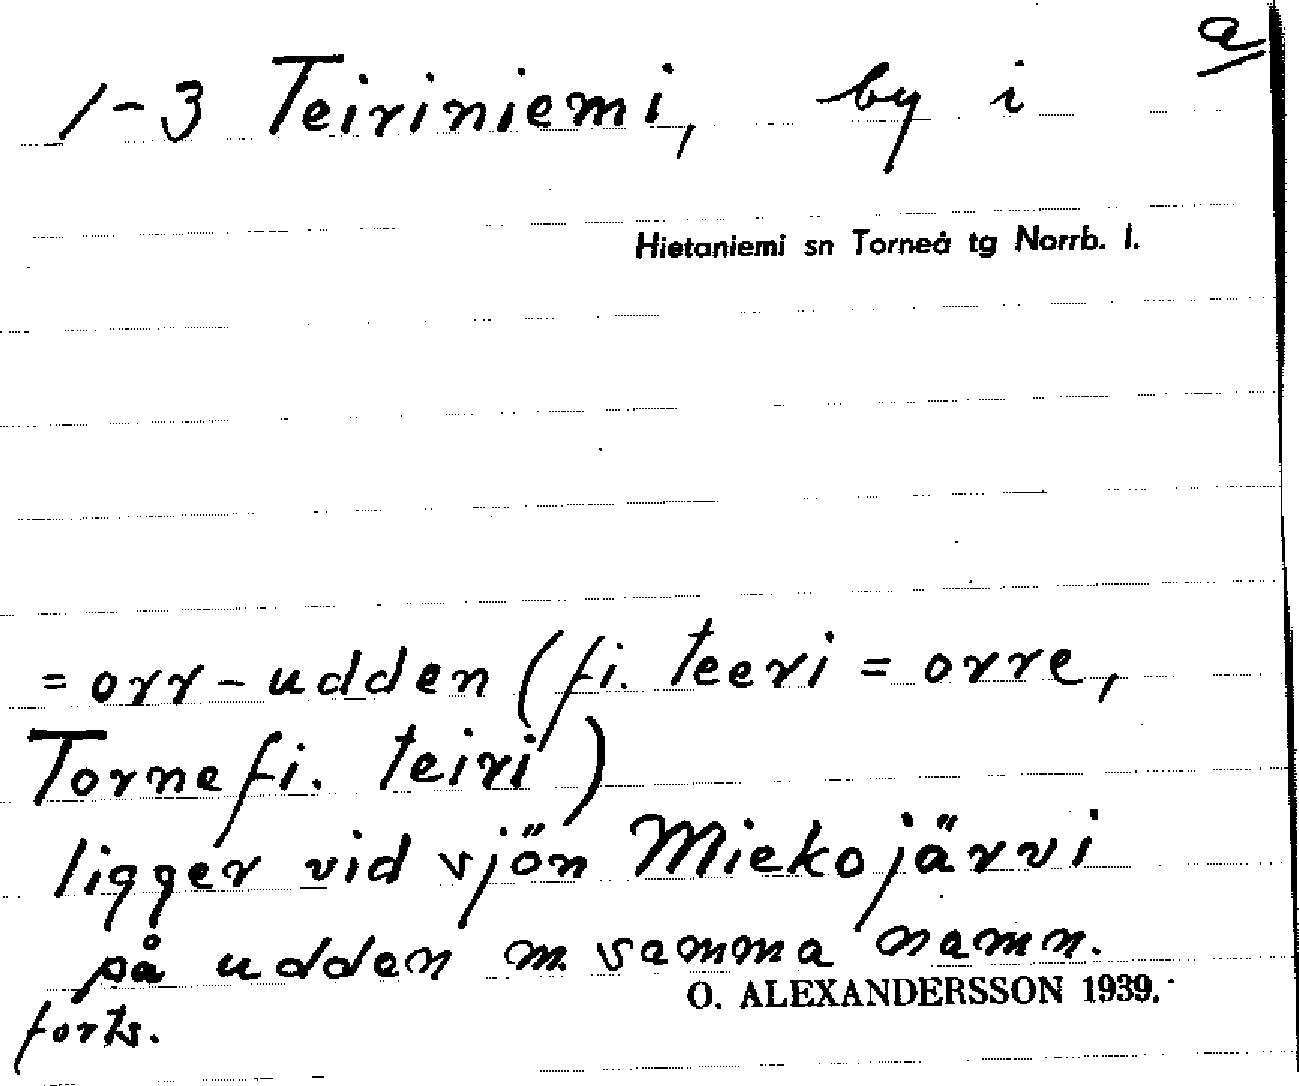 a
1-3 Teiriniemi, by i
Hietaniemi sn Torneå tg Norrb. l.
= orr-udden (fi. teeri = orre,
Tornefi. teiri)
ligger vid sjön Miekojärvi
på udden m. samma namn.
O. ALEXANDERSSON 1939.
forts.